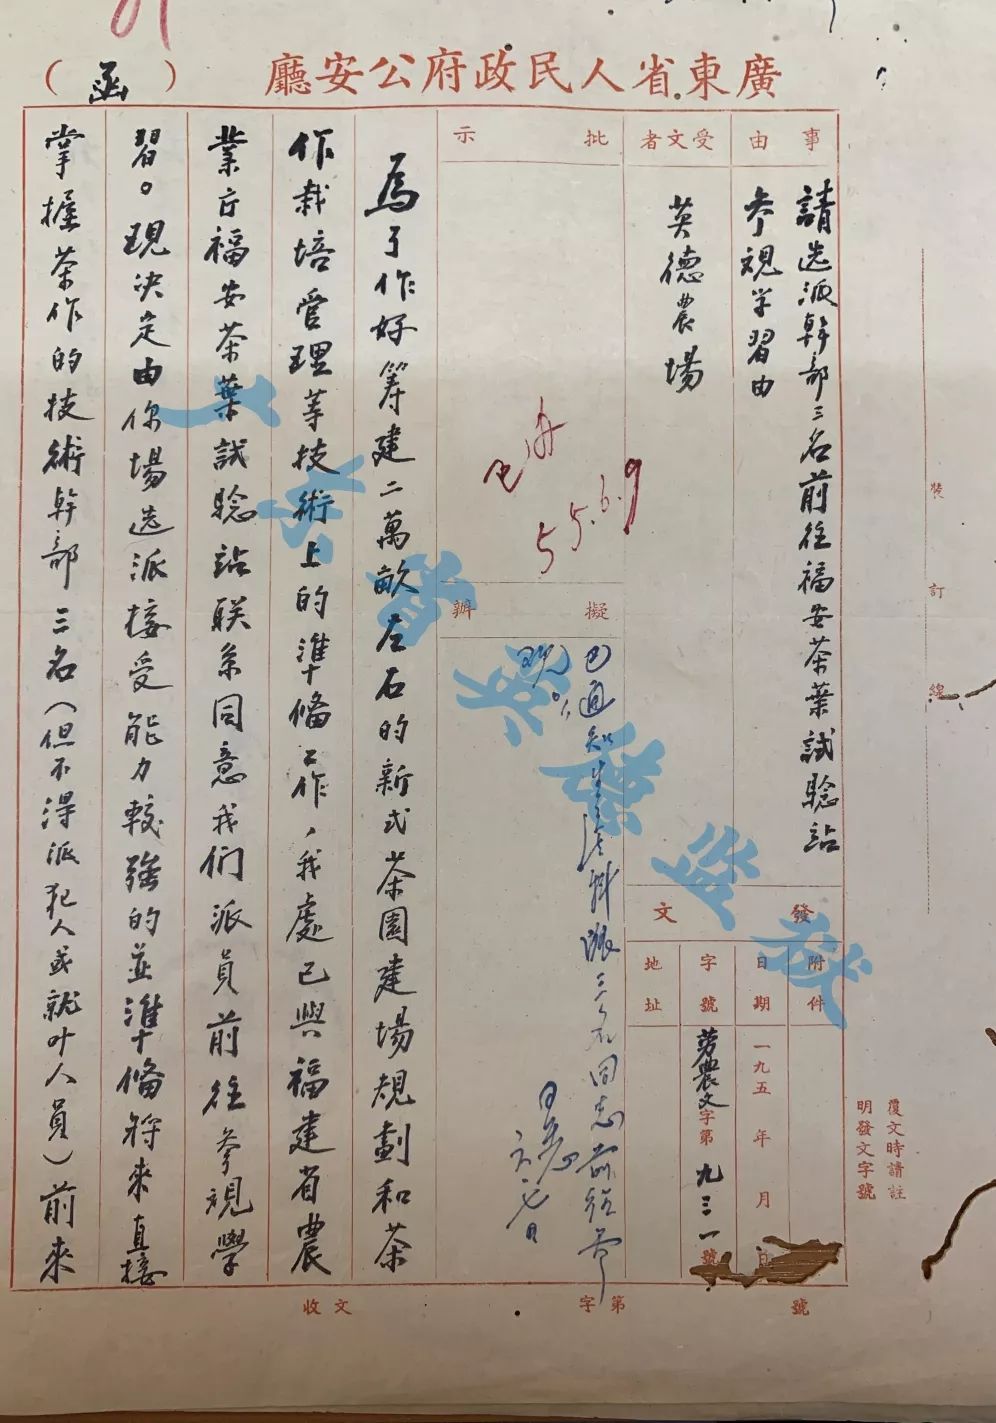 廣東省人民政府公安廳
（函）
事由
請选派幹部三名前往福安茶葉試驗站
参观学習由
受文者
英德農場
發文
附件
日期
一九五 年 月 日
字號
勞農文字第九三一號
地址
批示
已办
55.6.9
擬辦
已通知生產科派三名同志前往
為了作好筹建二萬畝左右的新式茶園建場規劃和茶
作栽培管理等技術上的準备工作，我處已與福建省農
業厅福安茶葉試驗站联系同意我们派員前往参观學
習。現决定由你場选派接受能力較強的並準备将来直接
掌握茶作的技術幹部三名（但不得派犯人或就叶人員）前来
收文
字第
號
裝訂線
覆文時請註
明發文字號